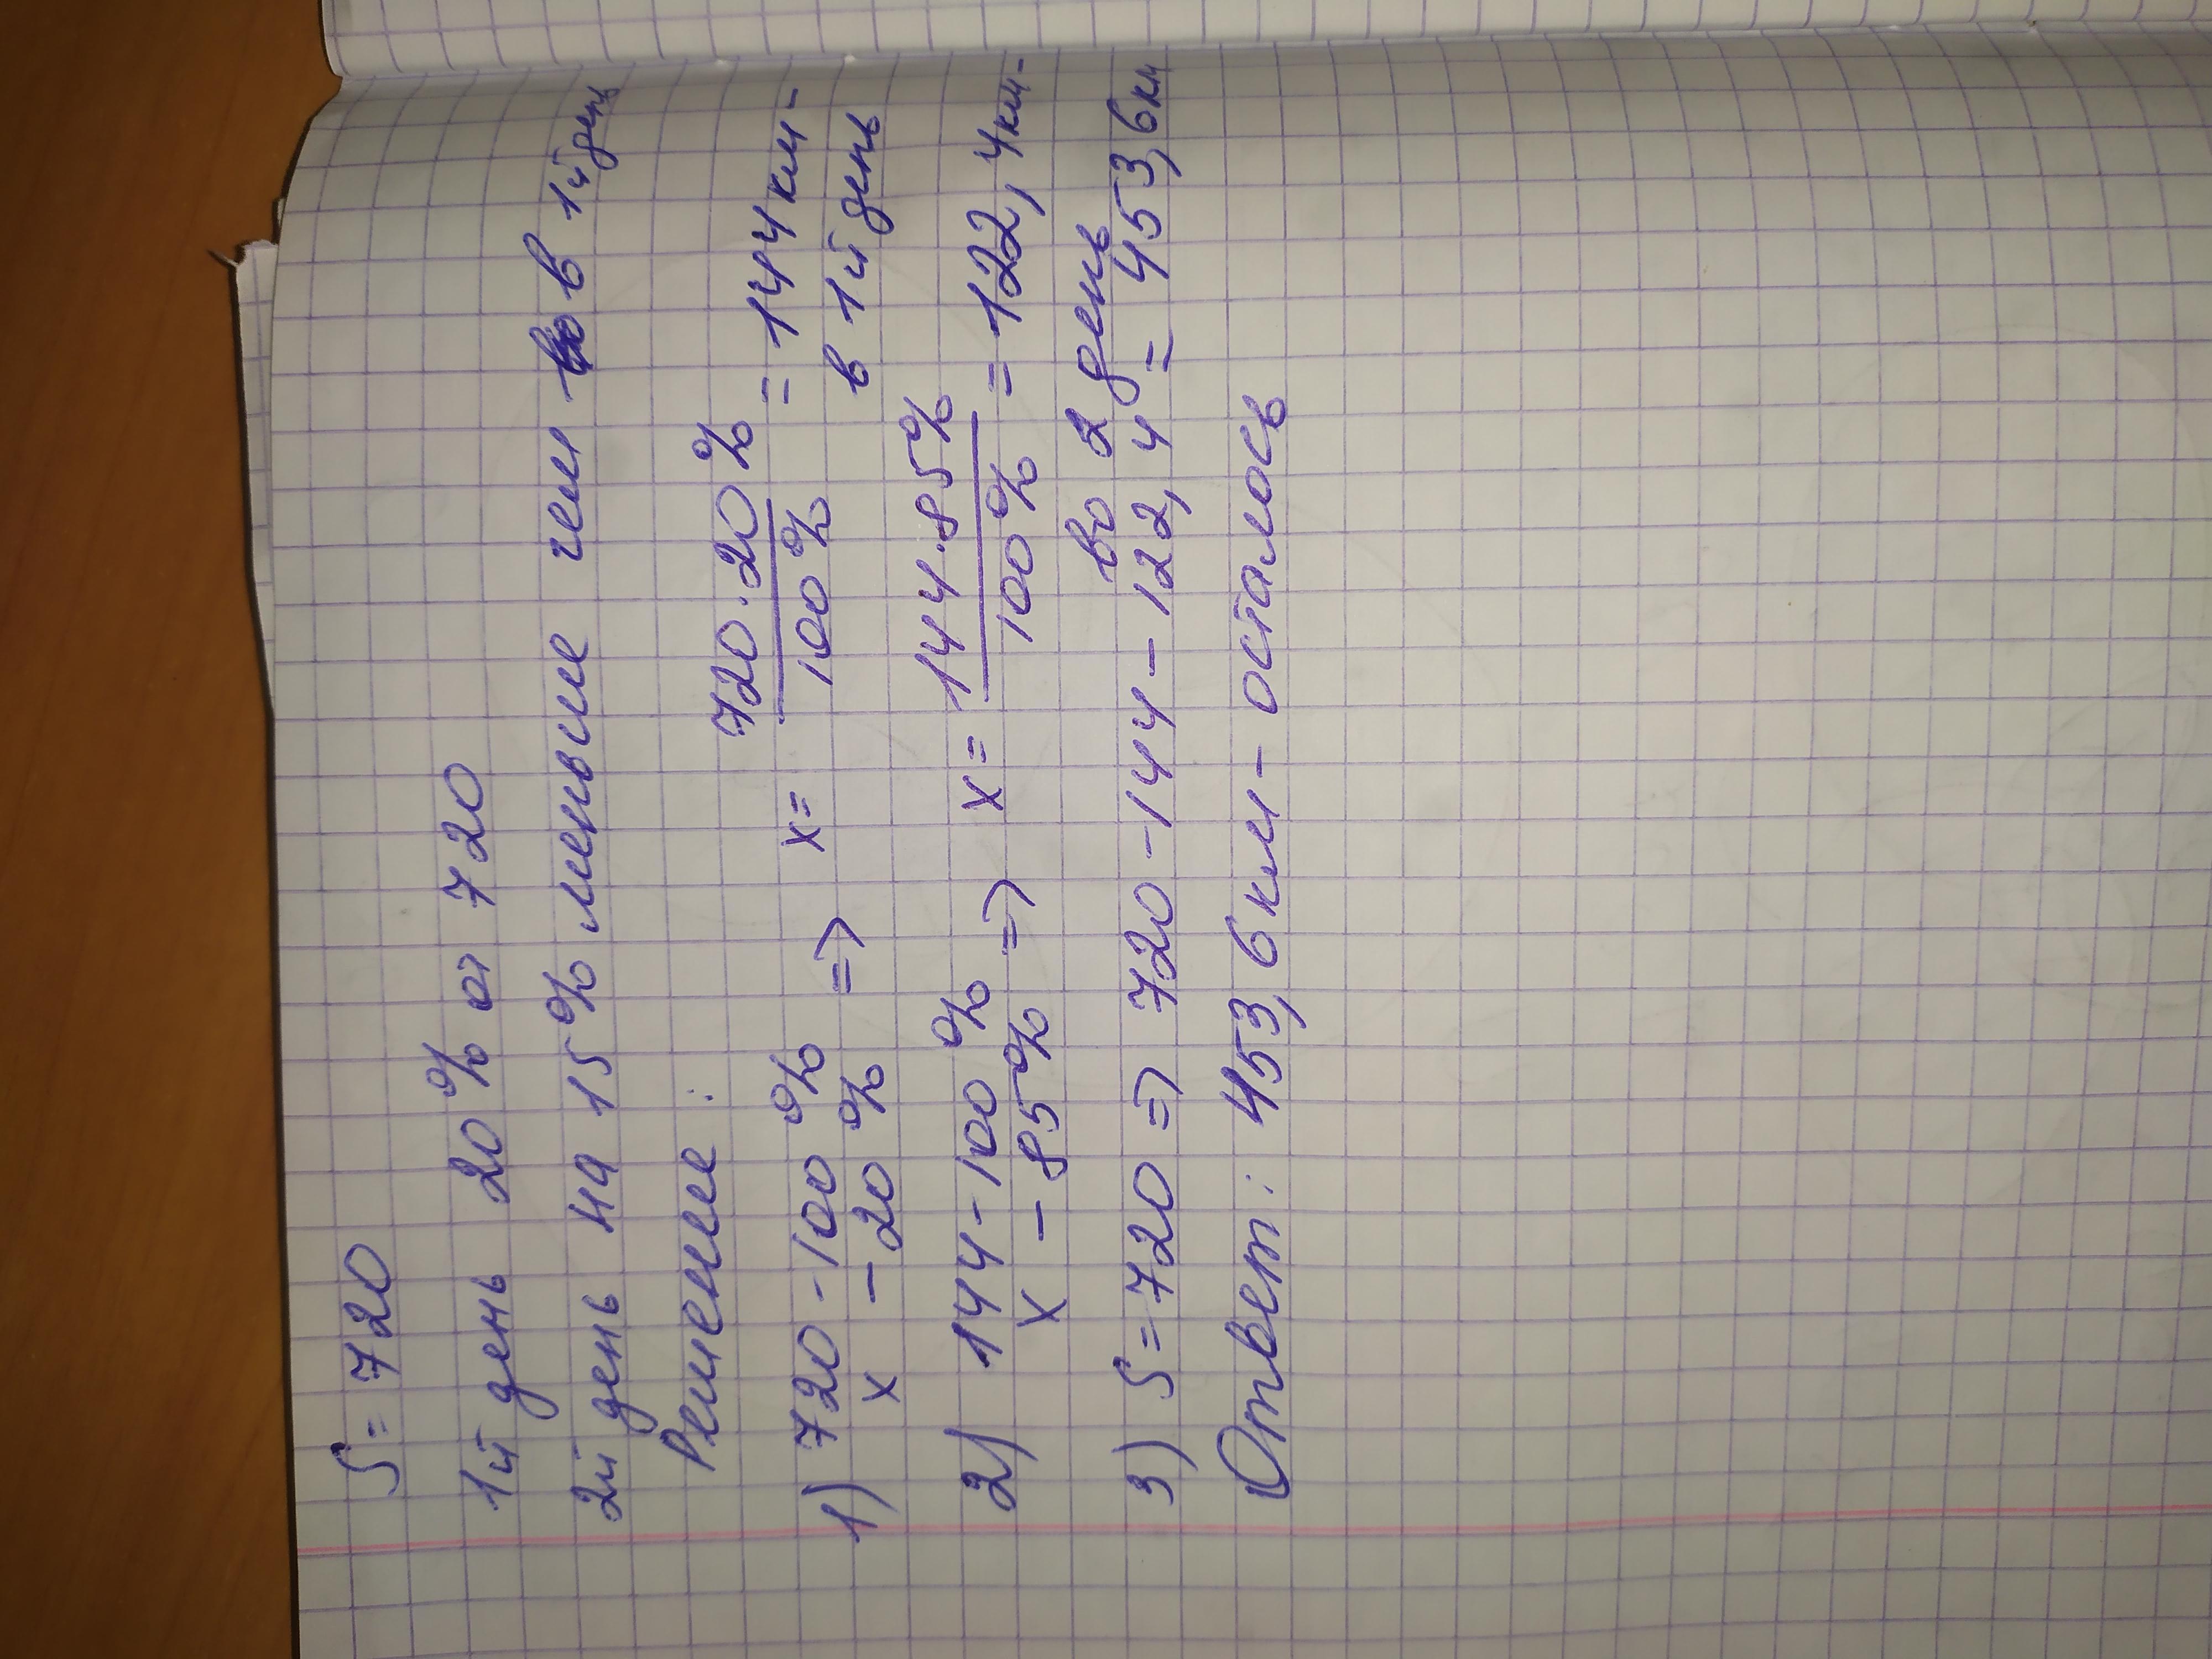 S = 720
1й день 20% от 720
2й день на 15% меньше чем в 1й день
Решение:
1) 720 - 100% => x = 720·20% / 100% = 144 км -
x - 20% в 1й день
2) 144 - 100% => x = 144·85% / 100% = 122,4 км -
x - 85% во 2 день
3) S = 720 => 720 - 144 - 122,4 = 453,6 км
Ответ: 453,6 км - осталось